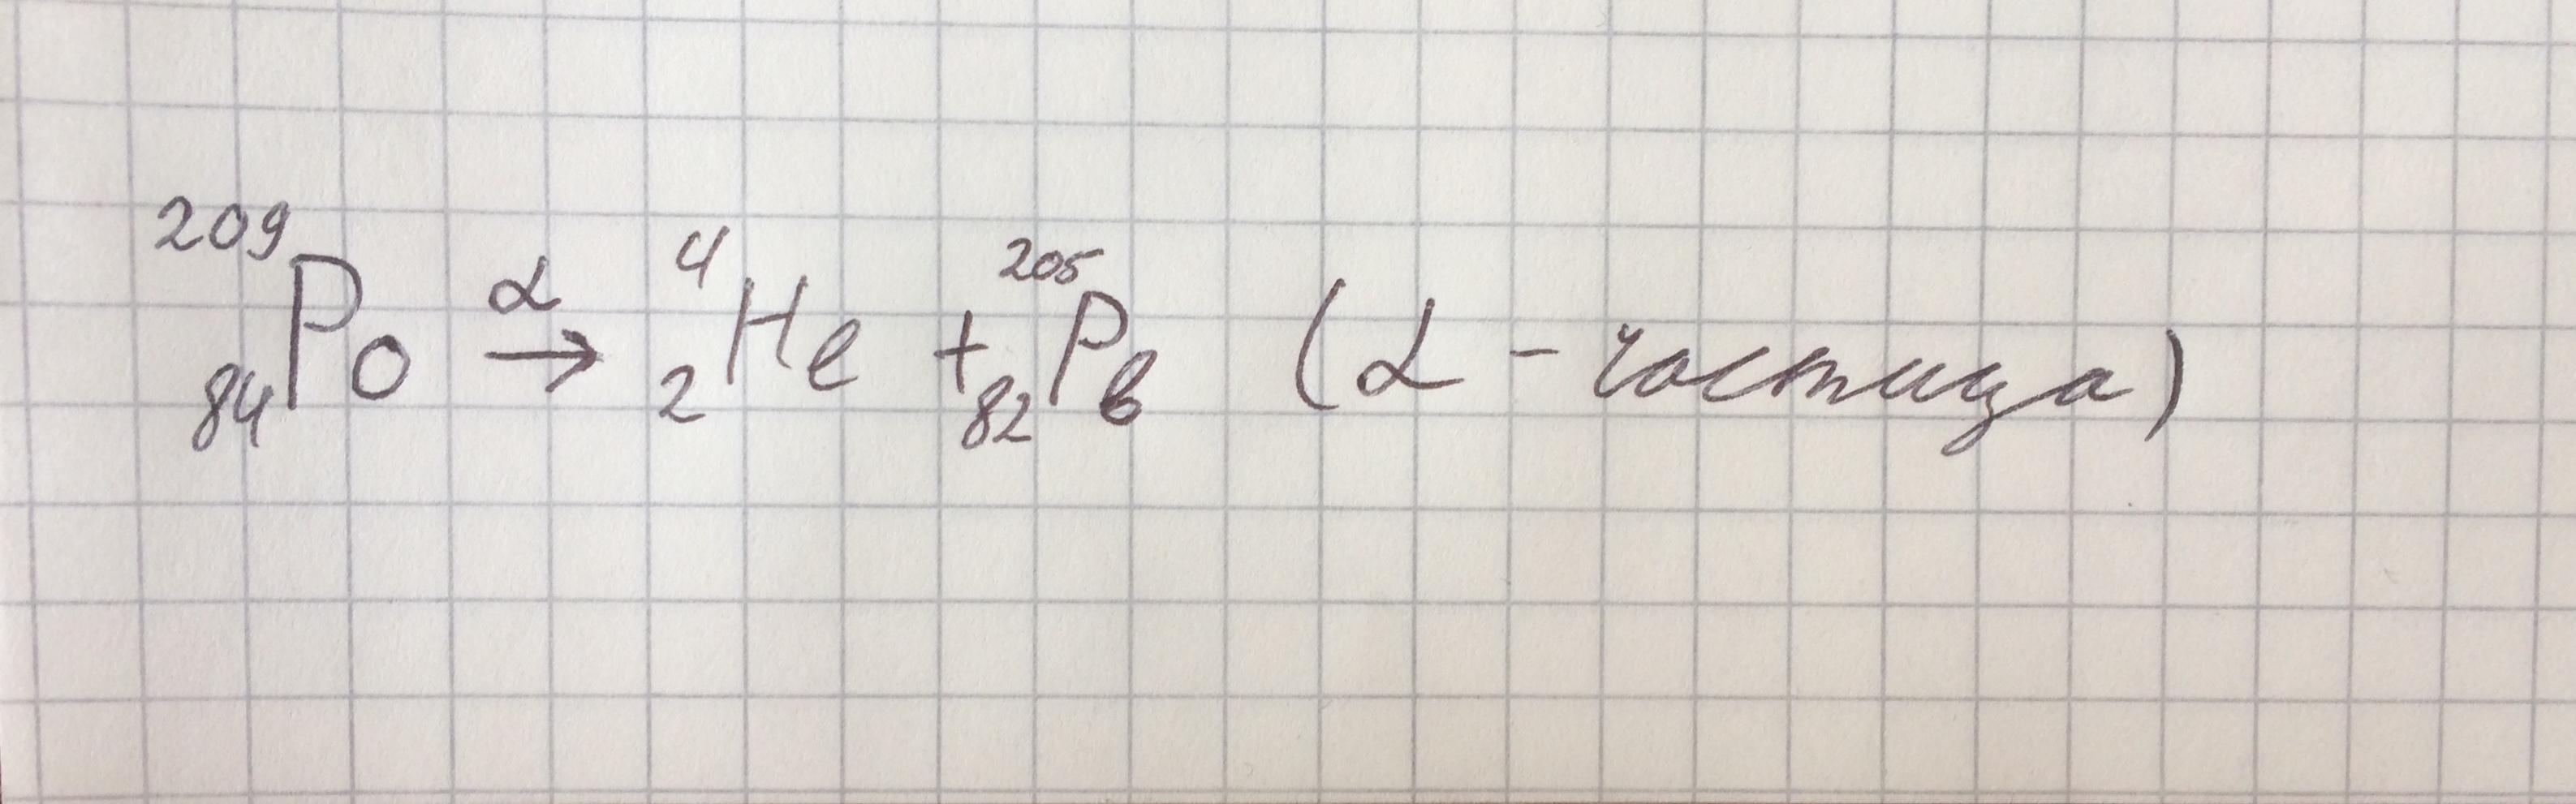 ²⁰⁹₈₄Po →^α ⁴₂He + ²⁰⁵₈₂Pb (α - частица)